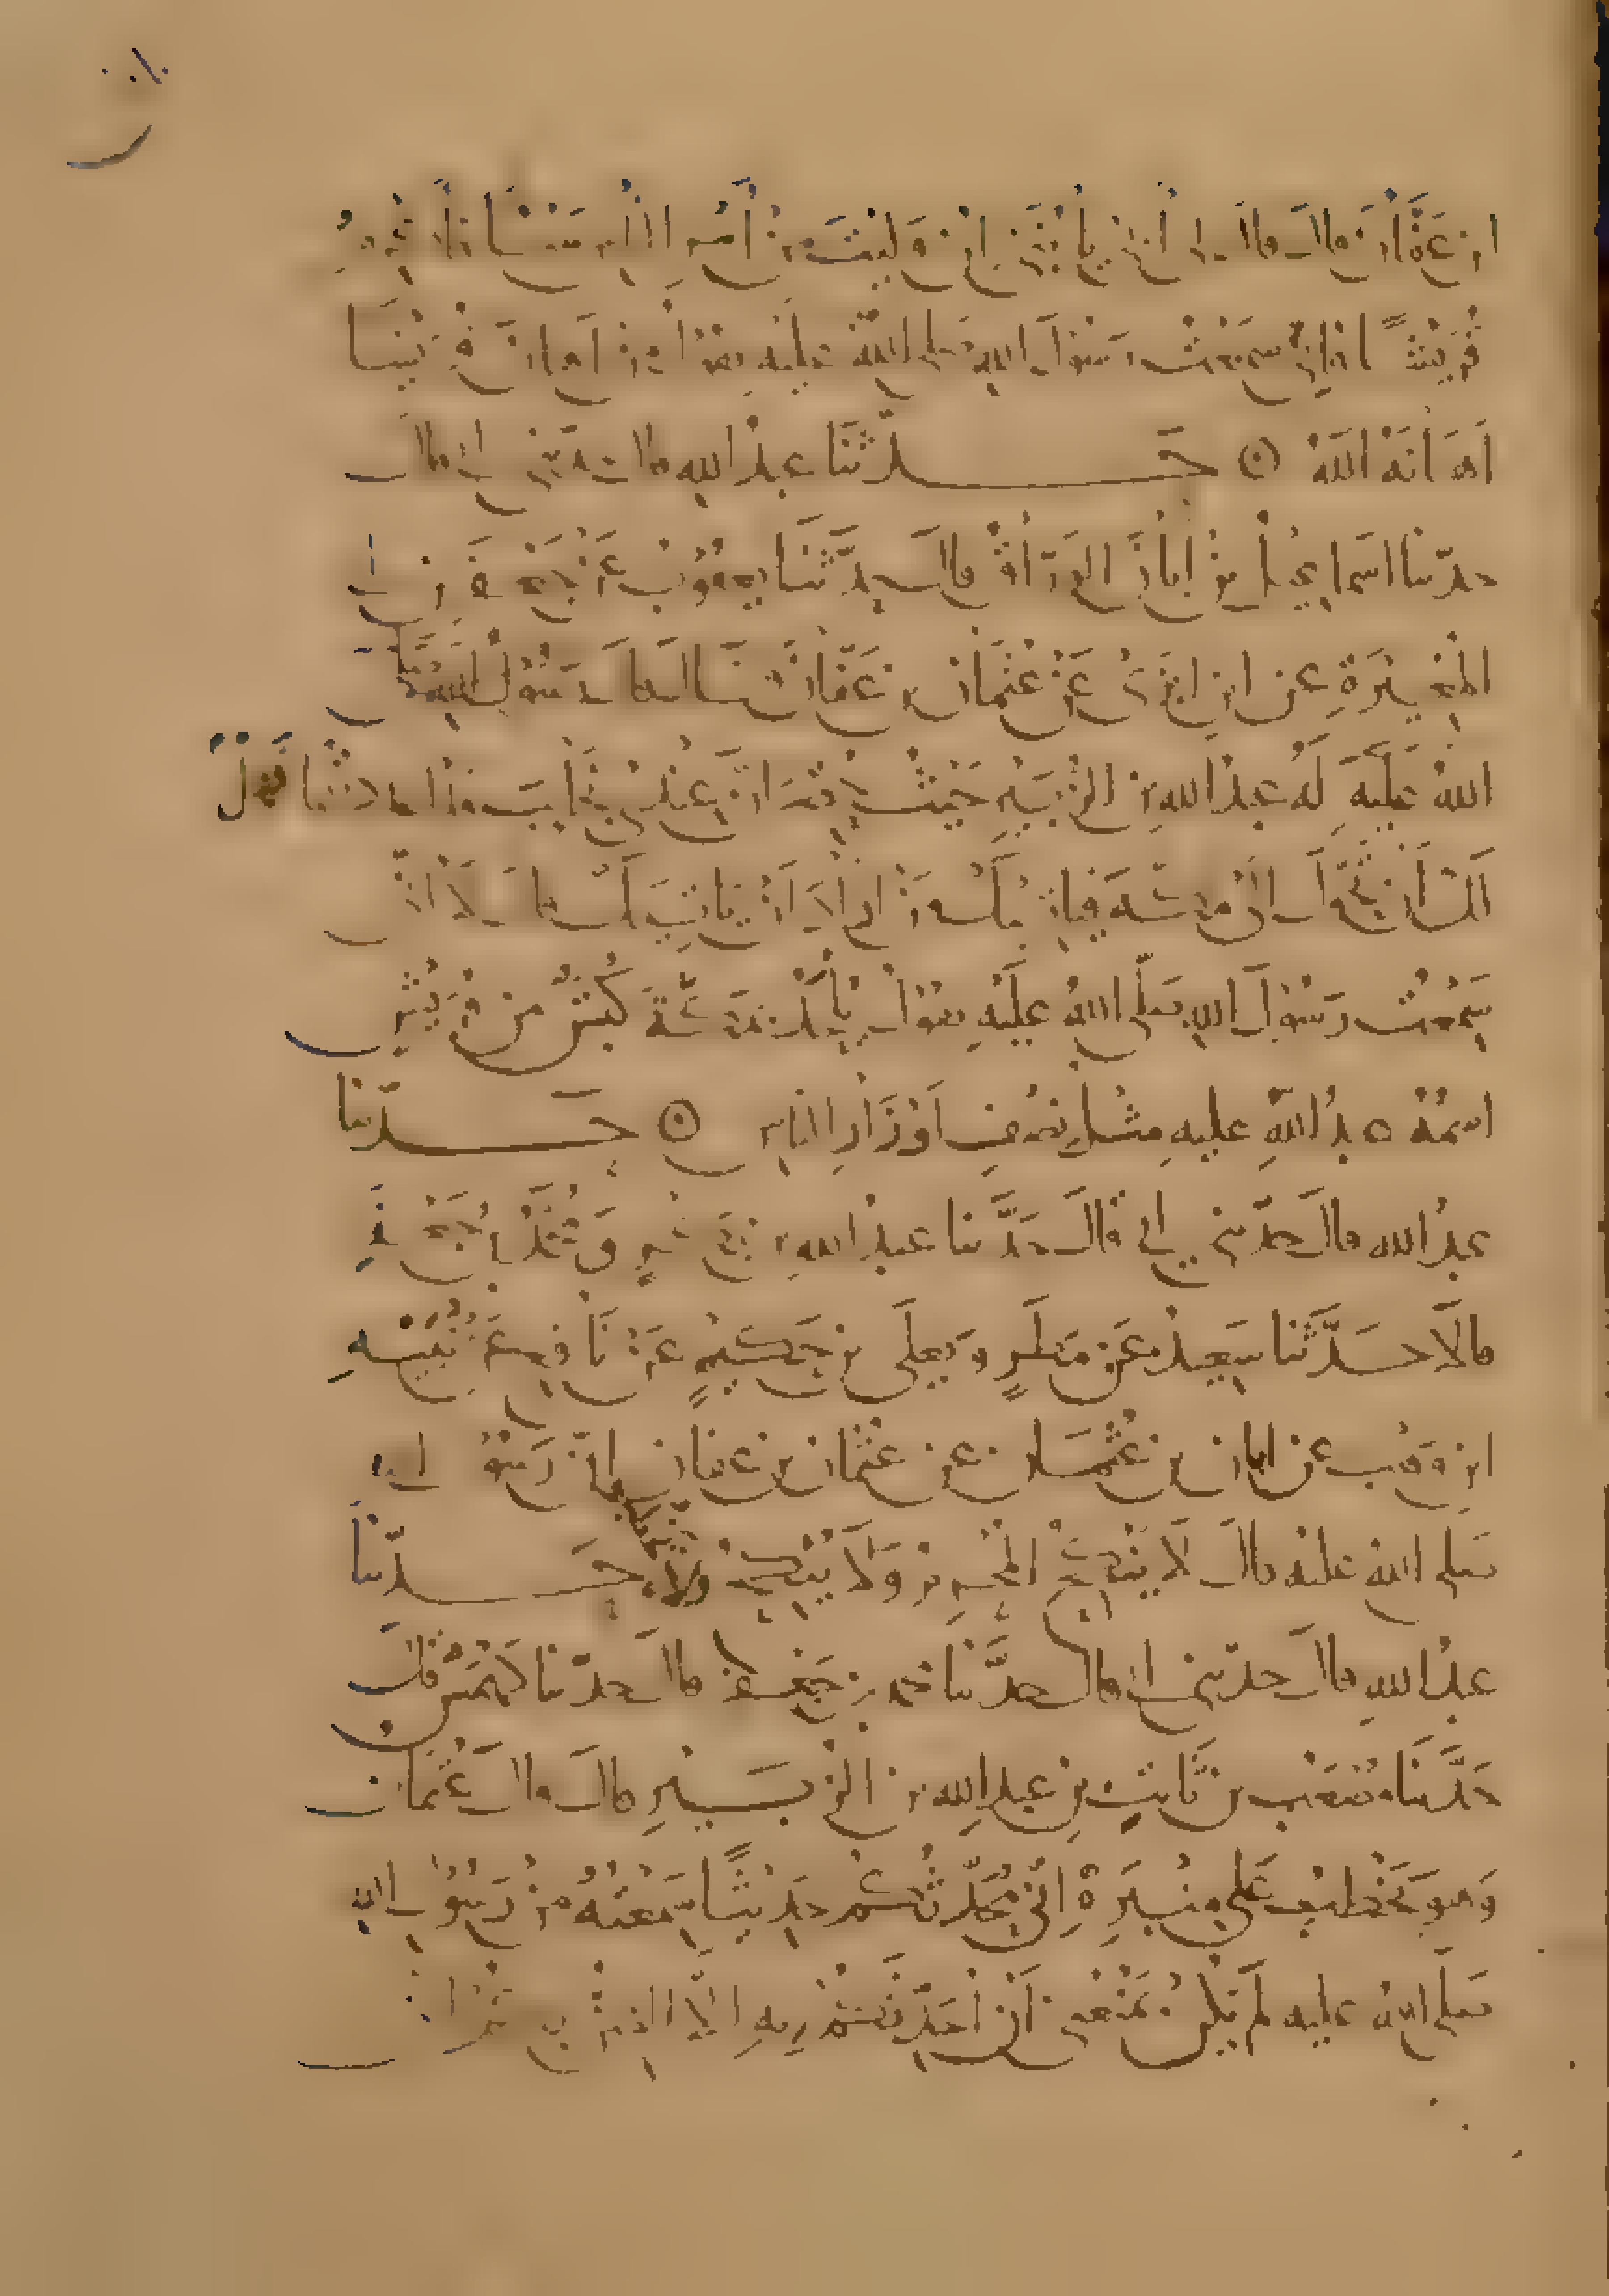 ابن عفان قال قال لي أبي يا بني إن وليت من أمر الناس شيئا فأكرم
قريشا فإني سمعت رسول الله صلى الله عليه يقول من أهان قريشا
أهانه الله حدثنا عبد الله قال حدثني أبي قال
حدثنا اسماعيل بن أبان الوراق قال حدثنا يعقوب عن جعفر بن أبي
المغيرة عن ابن ابزى عن عثمان بن عفان قال قال رسول الله صلى
الله عليه له عبد الله بن الزبير حيث حصر ان عندي نجايب فهل
لك أن تحول الى مكة فيأتيك من اراد أن يأتيك قال لا اني
سمعت رسول الله صلى الله عليه يقول يلحد بمكة كبش من قريش
اسمه عبد الله عليه مثل نصف أوزار الناس حدثنا
عبد الله قال حدثني أبي قال حدثنا عبد الله بن بكر ومحمد بن جعفر
قالا حدثنا سعيد عن مطر ويعلى بن حكيم عن نافع عن نبيه
ابن وهب عن ابان بن عثمان عن عثمان بن عفان ان رسول الله
صلى الله عليه قال لا ينكح المحرم ولا ينكح ولا يخطب حدثنا
عبد الله قال حدثني أبي قال حدثنا محمد بن جعفر قال حدثنا كهمس قال
حدثنا مصعب بن ثابت بن عبد الله بن الزبير قال قال عثمان
وهو يخطب على منبره إني محدثكم حديثا سمعته من رسول الله
صلى الله عليه لم يكن يمنعني أن أحدثكم به الا الضن